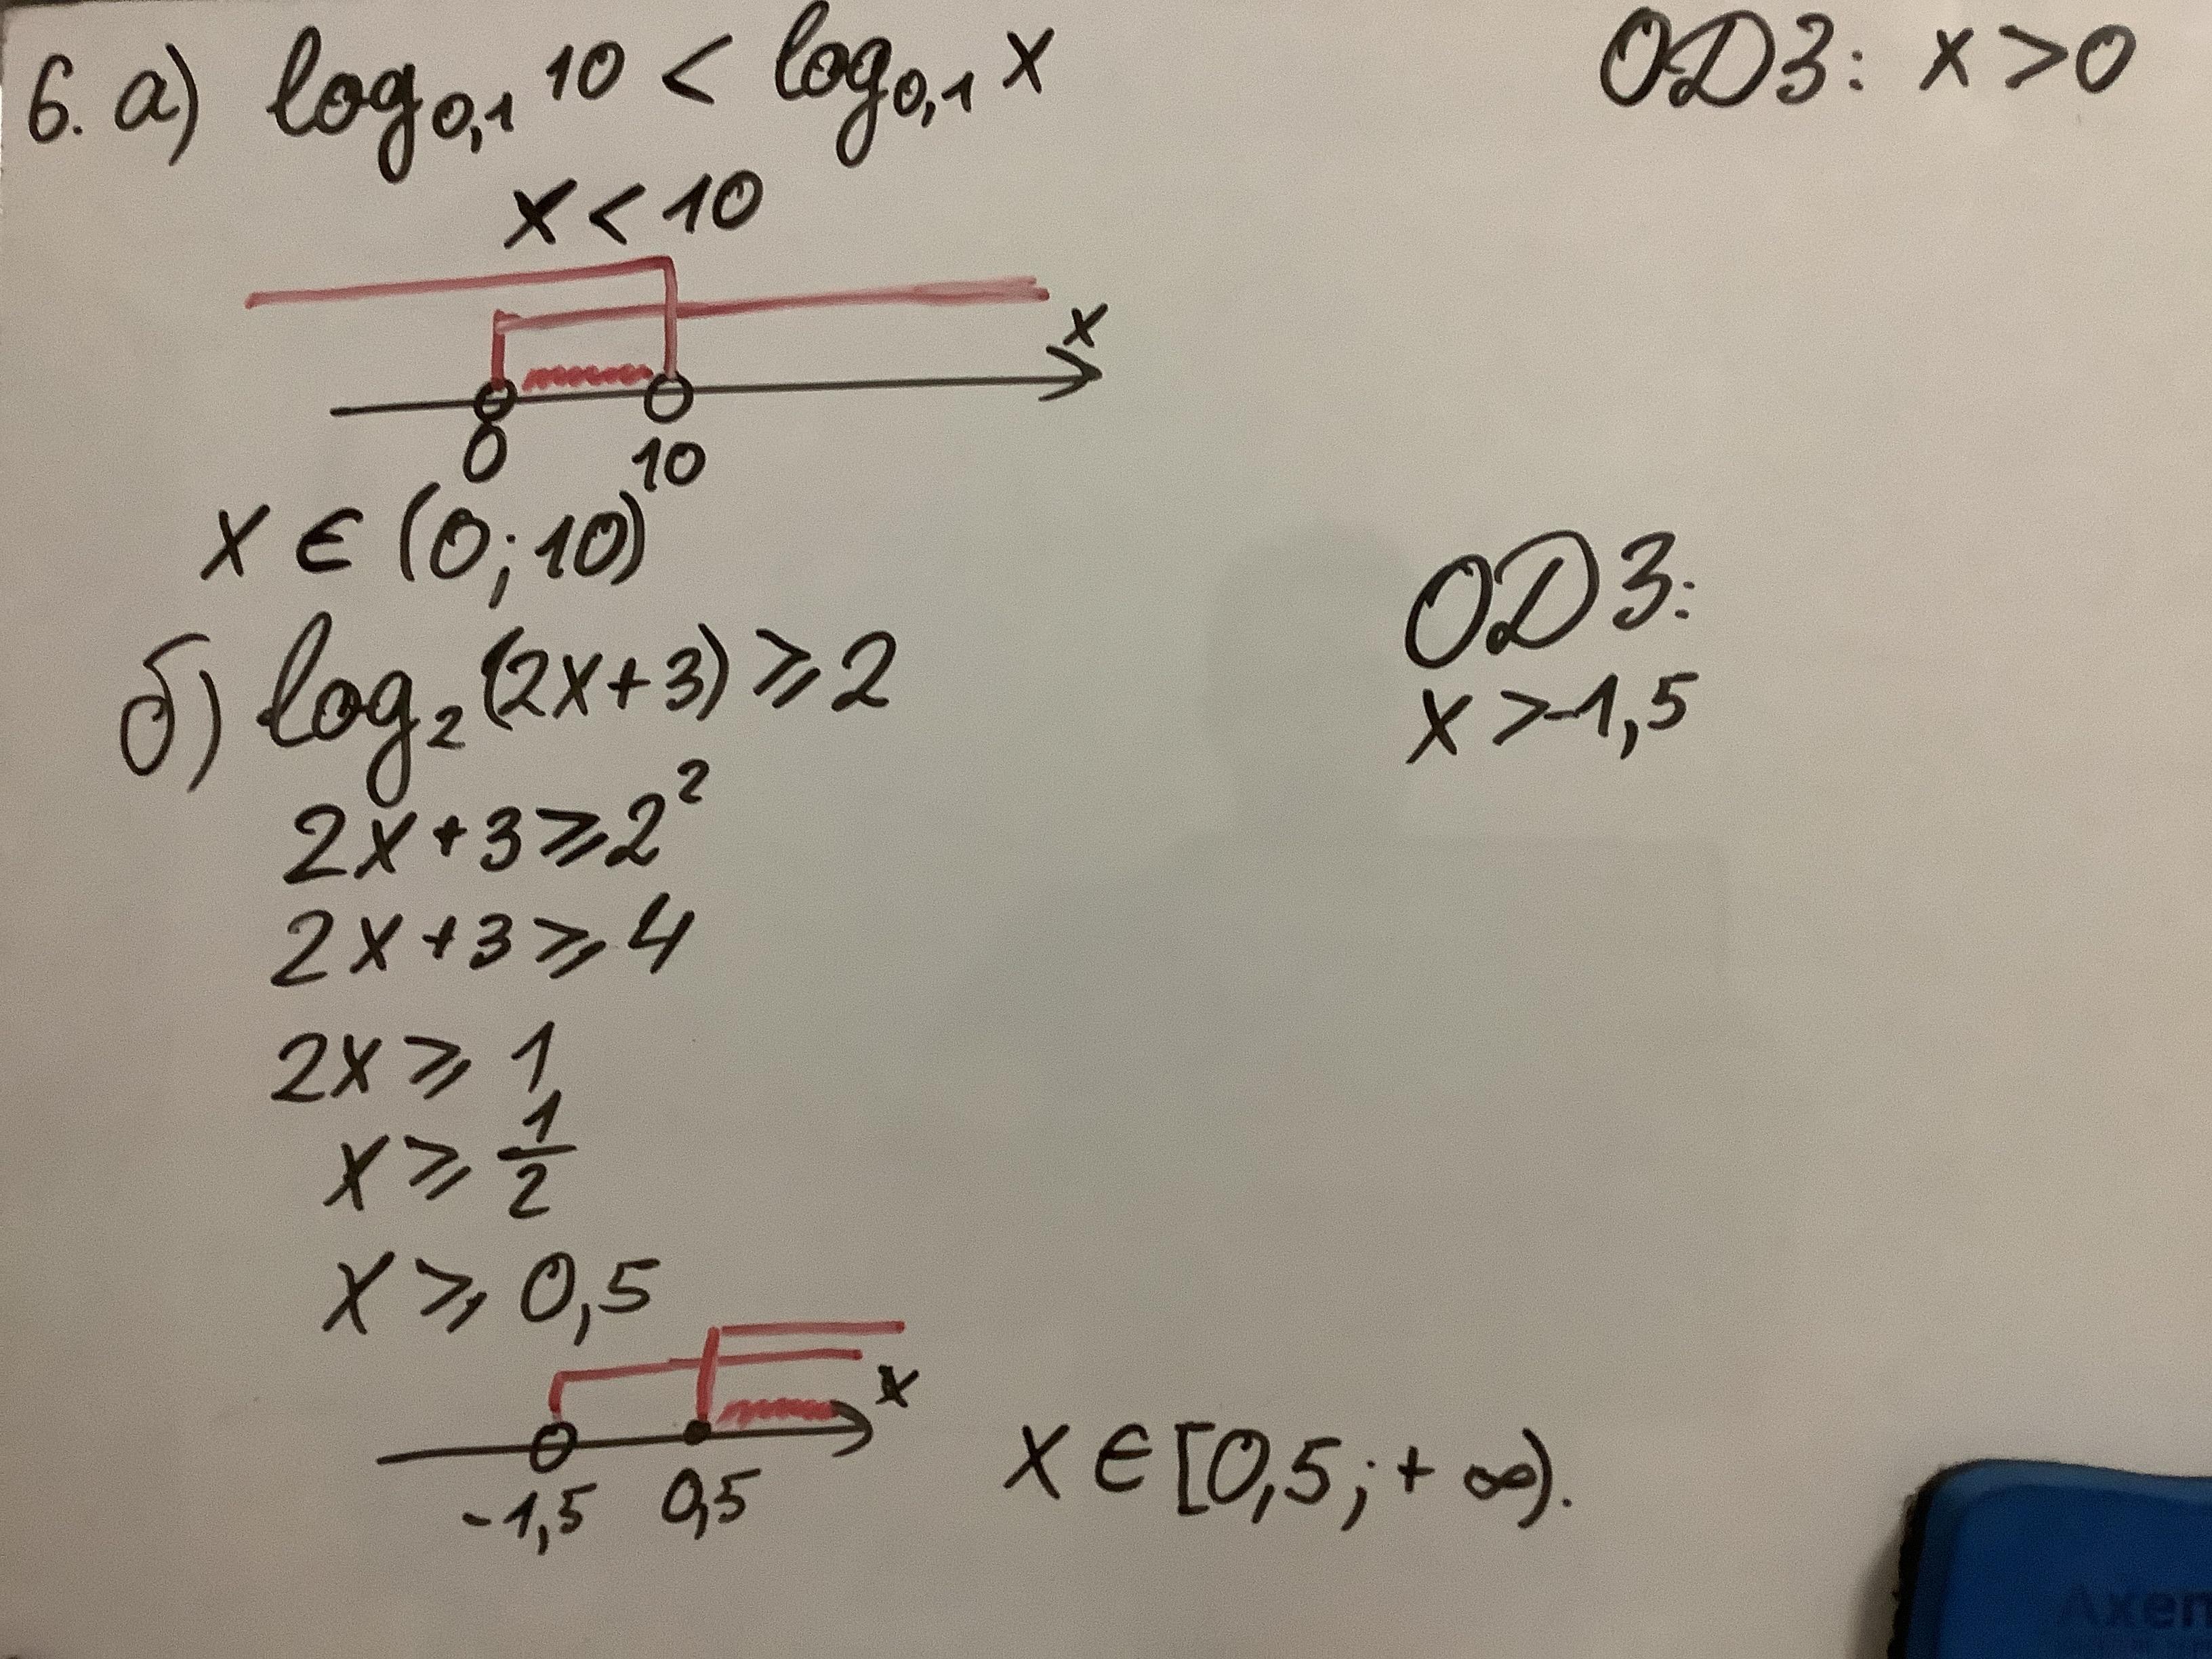 6. а) log₀,₁ 10 < log₀,₁ x
ОДЗ: x > 0
x < 10
x
0 10
x ∈ (0; 10)
б) log₂ (2x+3) ⩾ 2
ОДЗ:
x > -1,5
2x + 3 ⩾ 2²
2x + 3 ⩾ 4
2x ⩾ 1
x ⩾ 1/2
x ⩾ 0,5
x
-1,5 0,5
x ∈ [0,5; + ∞).
Axen